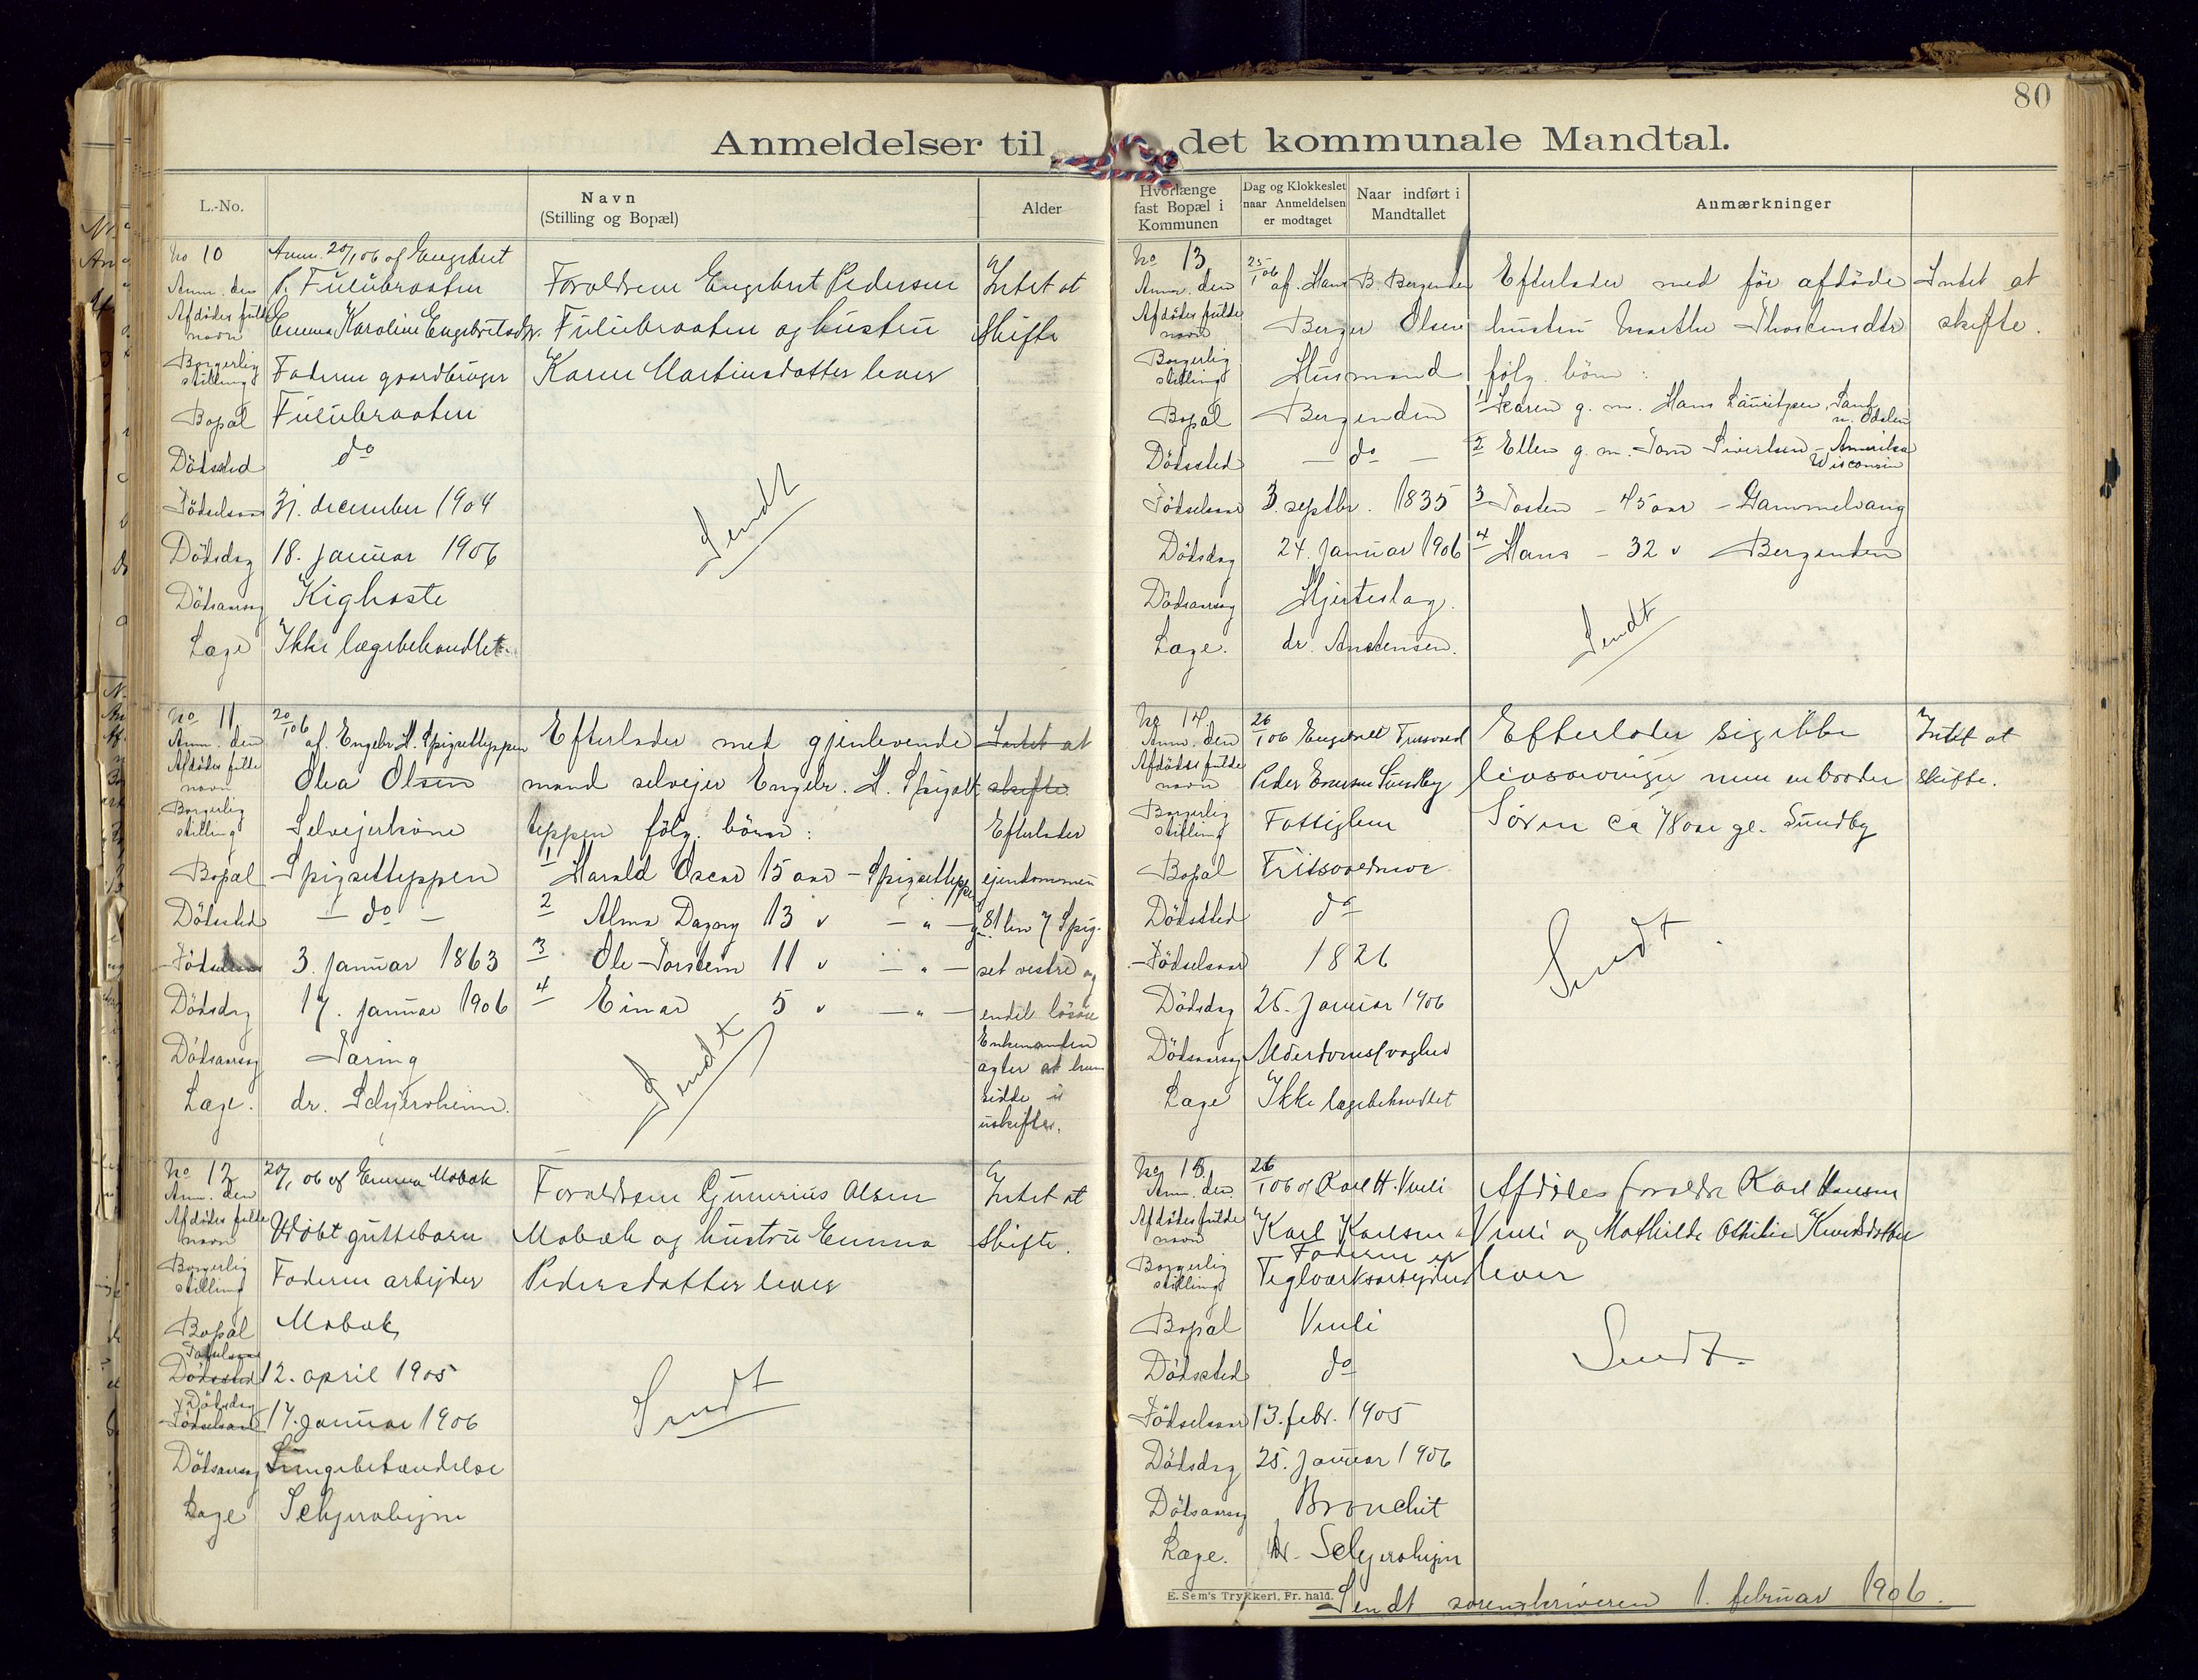 80
Anmeldelser til det kommunale Mandtal.
L.-No.
Navn
(Stilling og Bopæl)
Alder
No 10
Anm. den 20/1 06 af Engebret
P. Fulubraaten
Afdödes fulde navn Emma Karoline Engebretsdtr.
Borgerlig stilling Faderen gaardbruger
Bopæl Fulubraaten
Dödssted do
Födselsaar 31. december 1904
Dödsdag 18. januar 1906
Dödsaarsag Kighoste
Læge Ikke lægebehandlet.
Forældrene Engebret Pedersen
Fulubraaten og hustru
Karen Martinsdatter lever
Sendt
Intet at
skifte
No 11
Anm. den 20/1 06 af. Engebr. H. Spigsetteppen
Afdödes fulde navn Olea Olsen
Borgerlig stilling Selvejerkone
Bopæl Spigsetteppen
Dödssted – do –
Födselsaar 3. januar 1863
Dödsdag 17. januar 1906
Dödsaarsag Tæring
Læge. dr. Schjerpheim.
Efterlader med gjenlevende
mand selvejer Engebr. H. Spigset-
teppen fölg. börn:
1 Harald Oscar 15 aar – Spigsetteppen
2 Alma Dagny 13 " – " –
3 Ole Torstein 11 " – " –
4 Einar 5 " – " –
Sendt
Intet at
skifte.
Efterlader
ejendommen
g.no. 81 bno 7 Spig-
set vestre og
endel lösöre
Enkemanden
agter at hen-
sidde i
uskiftet.
No 12
Anm. den 20/1 06 af Emma Mobæk
Afdödes fulde navn Udöbt guttebarn
Borgerlig stilling Faderen arbejder
Bopæl Mobæk
Födselsaar
Dödssted 12. april 1905
Dödsdag
Födselsaar 17. januar 1906
Dödsaarsag Lungebetændelse
Læge Schjerpheim
Forældrene Gunerius Olsen
Mobæk og hustru Emma
Pedersdatter lever
Sendt
Intet at
skifte.
Hvorlænge
fast Bopæl i
Kommunen
Dag og Klokkeslet
naar Anmeldelsen
er modtaget
Naar indført i
Mandtallet
Anmærkninger
No 13
Anm. den 25/1 06 af. Hans B. Bergenden
Afdödes fulde navn Berger Olsen
Borgerlig stilling Husmand
Bopæl Bergenden
Dödssted – do –
Födselsaar 3. septbr. 1835
Dödsdag 24. januar 1906
Dödsaarsag Hjerteslag.
Læge. dr. Anstensen.
Efterlader med för afdöde
hustru Marthe Thostensdtr
fölg. börn:
1 Karen g. m. Hans Lauritzen, Sand
n. Odalen
2 Ellen g. m. Tom Sivertsen – Amerika
Wisconsin
3 Tosten – 45 aar – Gammelvang
4 Hans – 32 " Bergenden
Sendt
Intet at
skifte.
No 14.
Anm. den 26/1 06 Engebret Fritsvold
Afdödes fulde navn Peder Sundby
Borgerlig stilling Fattiglem
Bopæl
Dödssted do
Födselsaar 1826
Dödsdag 25. januar 1906
Dödsaarsag Alderdomssvaghed
Læge Ikke lægebehandlet
Efterlader sig ikke
livsarvinger men en broder
Sören ca 78 aar gl. Sundby
Sendt
Intet at
skifte.
No 15.
Anm. den 26/1 06 af Karl H. Vuli
Afdödes fulde navn Karl Karlsen
Borgerlig stilling Faderen er
Teglværksarbejder
Bopæl Vuli
Dödssted do
Födselsaar 13. febr. 1905
Dödsdag 25. januar 1906
Dödsaarsag Bronchit
Læge. Dr. Schjerpheim
Afdödes forældre Karl Hansen
Vuli og Mathilde Othilie
lever
Sendt.
E. Sem's Trykkeri, Fr. hald.
Sendt sorenskriveren 1. februar 1906.